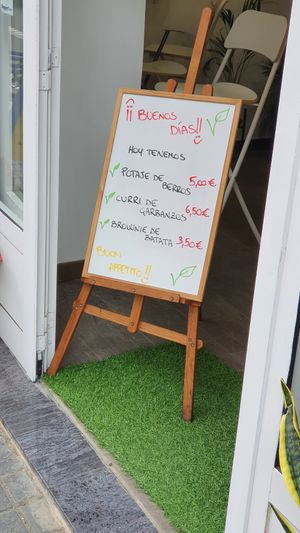 ¡¡ BUENOS
DÍAS!!
HOY TENEMOS
POTAJE DE
BERROS 5,00€
CURRI DE
GARBANZOS 6,50€
BROWNIE DE
BATATA 3,50€
BUON
APPETITO!!